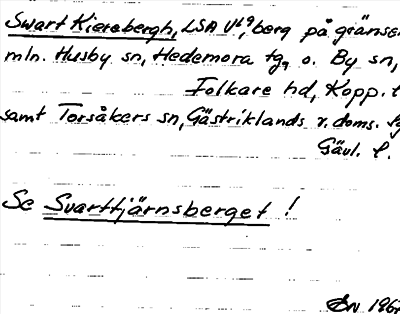 Swart Kiersbergh, LSA V69, berg på gränsen
mln. Husby sn, Hedemora tg, o. By sn,
Folkare hd, Kopp. l
samt Torsåkers sn, Gästriklands v. doms. tg
Gävl. l.
Se Svarttjärnsberget !
196